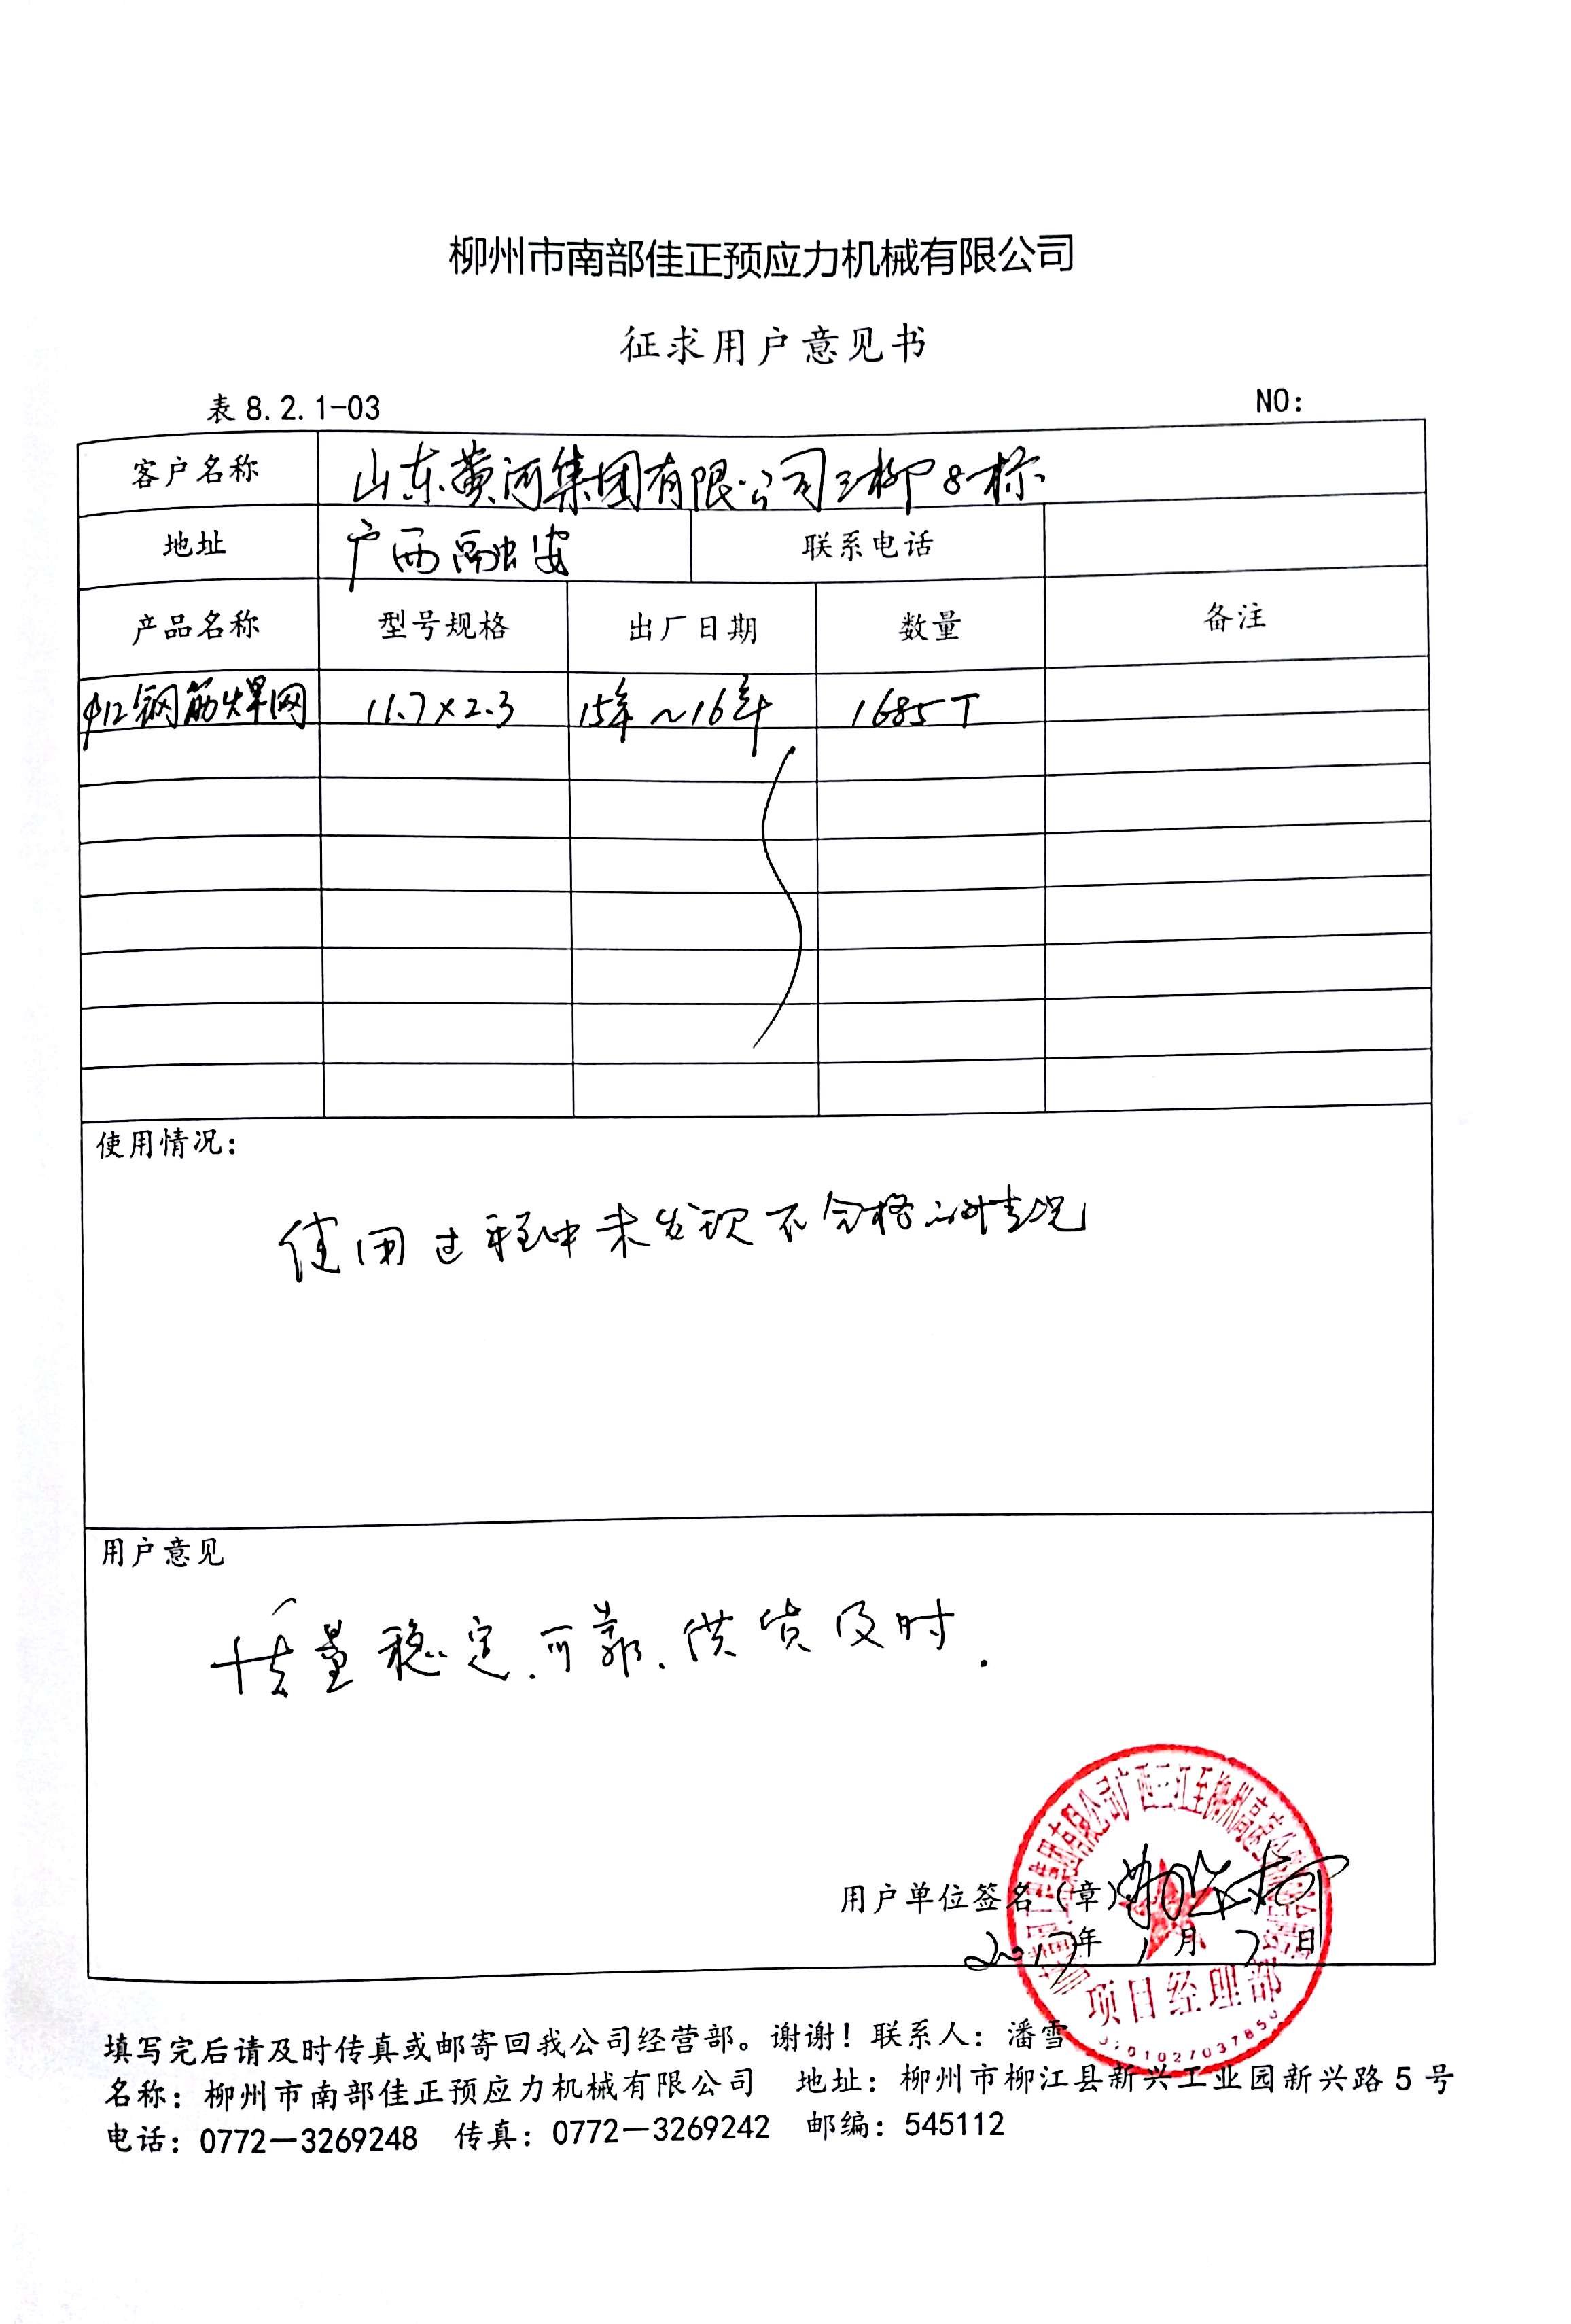 柳州市南部佳正预应力机械有限公司
征求用户意见书
表 8.2.1-03 NO:
客户名称 山东黄河集团有限公司三柳8标
地址 广西融安 联系电话
产品名称 型号规格 出厂日期 数量 备注
φ12钢筋焊网 11.7×2.3 15年~16年 1685T
使用情况：
使用过程中未发现不合格的情况
用户意见
质量稳定、可靠、供货及时.
用户单位签名（章）
2017年1月7日
项目经理部
填写完后请及时传真或邮寄回我公司经营部。谢谢！联系人：潘雪
名称：柳州市南部佳正预应力机械有限公司 地址：柳州市柳江县新兴工业园新兴路5号
电话：0772—3269248 传真：0772—3269242 邮编：545112